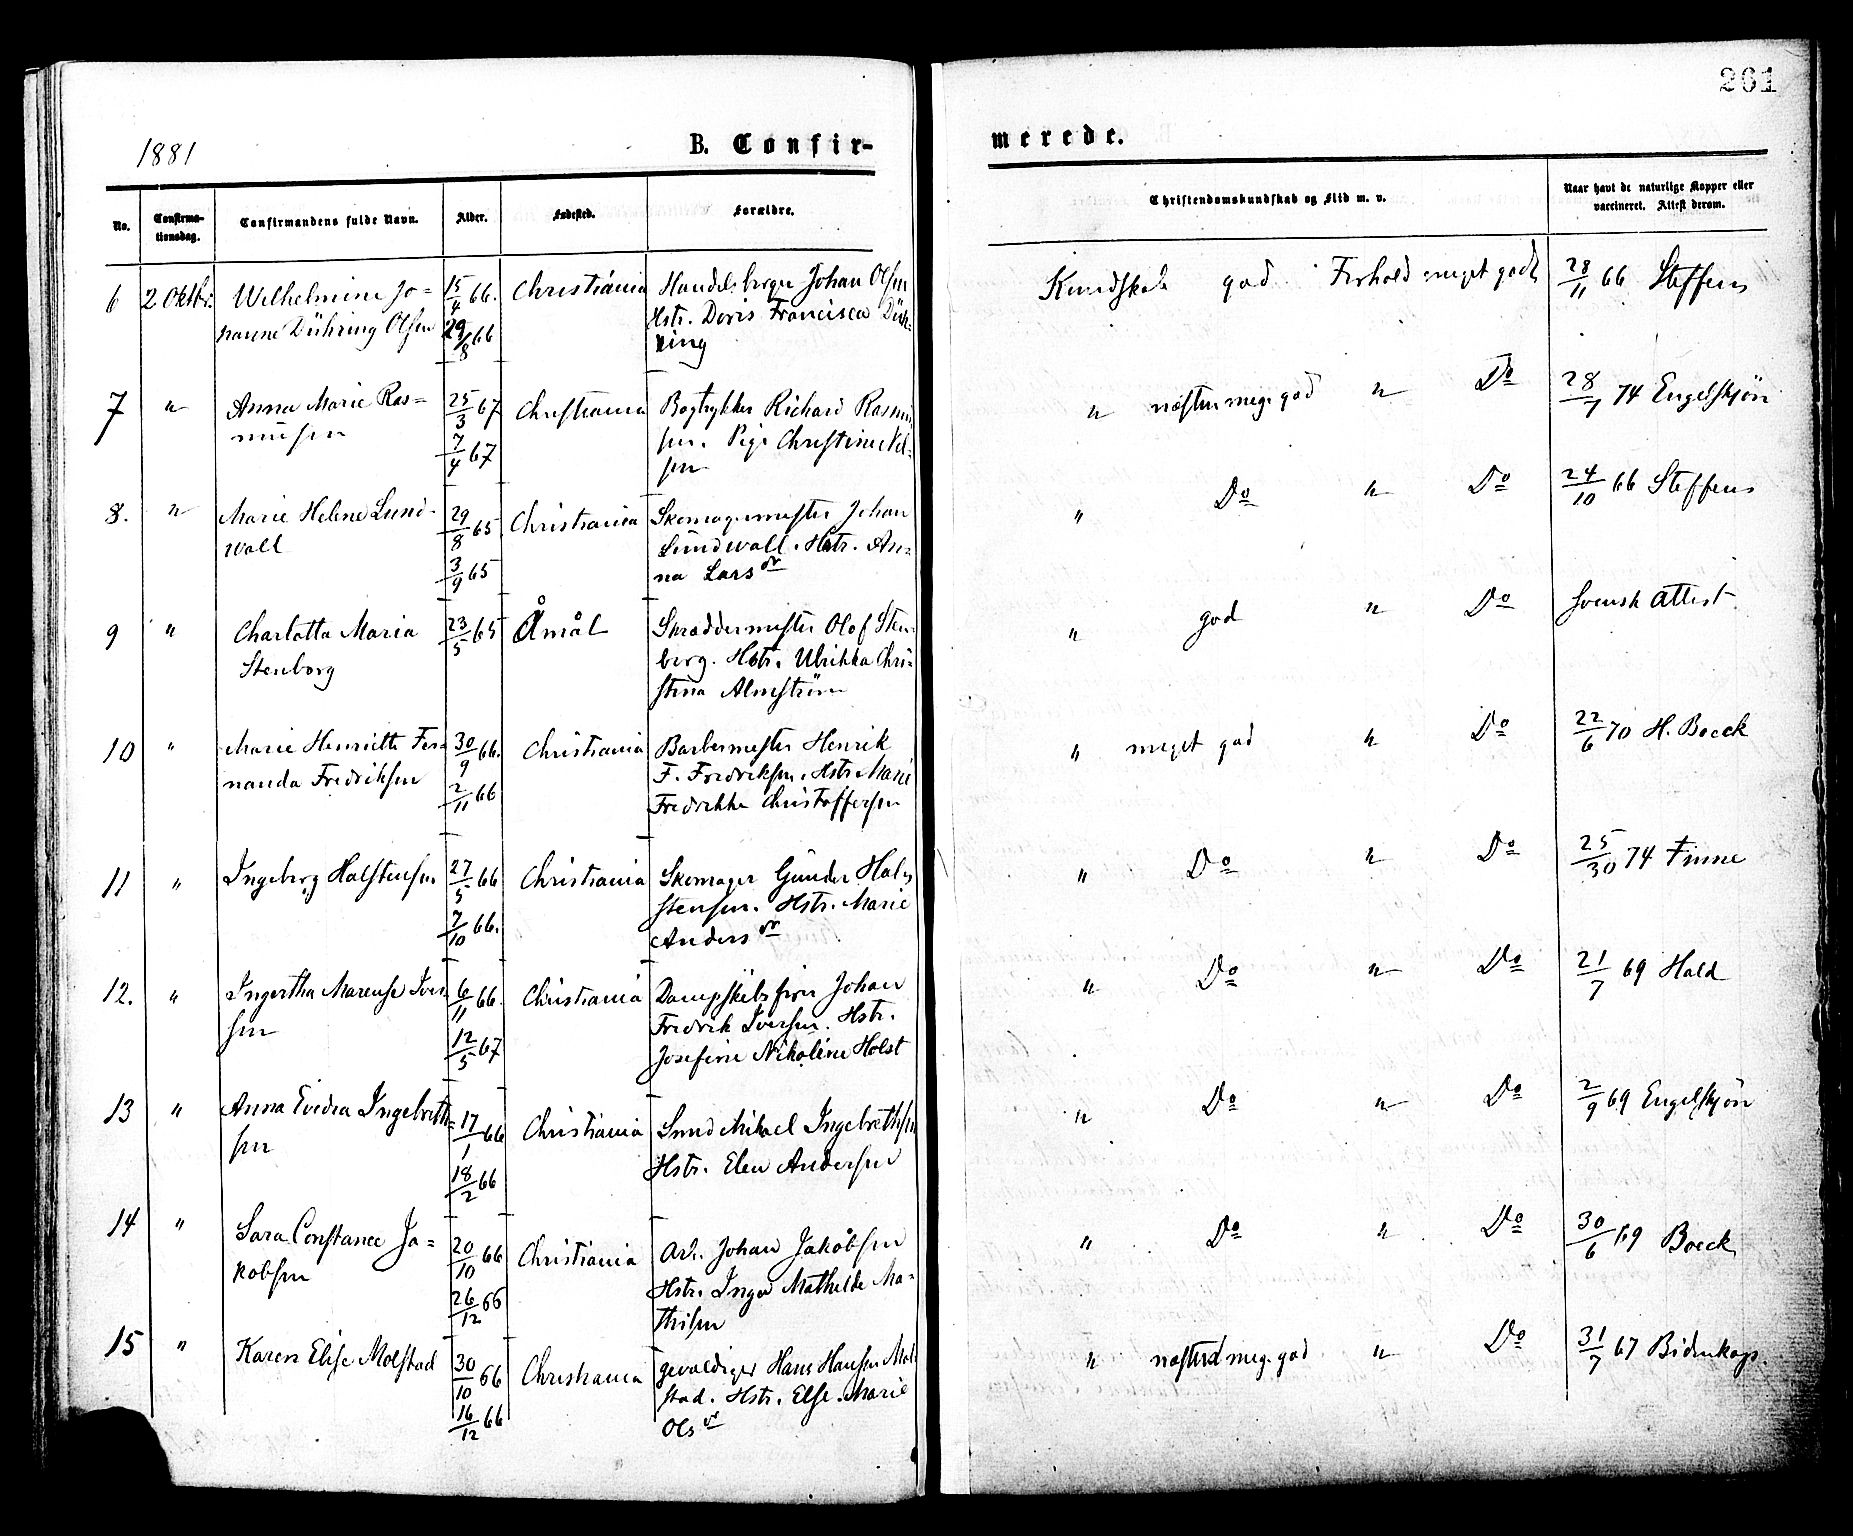 261
1881
B. Confir-
merede.
No.
Confirma-
tionsdag.
Confirmandens fulde Navn.
Alder.
Fødested.
Forældre.
Christendomskundskab og Flid m. v.
Naar havt de naturlige Kopper eller
vaccineret. Attest derom.
6 2 Oktbr. Wilhelmine Jo= 15/4 66. Christiania Handelsborger Johan Olsen Kundskab god Forhold meget godt 28/11 66 Steffens
hanne Dühring Olsen 29/8 66 Hstr. Doris Francisca Düh-
ring
7 " Anna Marie Ras= 25/3 67 Christiania Bogtrykker Richard Rasmu " næsten meg. god " Do 28/7 74 Engelskjøn
mussen 7/4 67 sen. Pige Christine Nil-
sen
8. " Marie Helene Lund- 29/8 65 Christiania Skomagermester Johan " Do " Do 24/10 66 Steffens
wall 3/9 65 Lundwall. Hstr. An-
na Larsdr
9 " Charlotta Maria 23/5 65 Åmål Skræddermester Olof Sten " god " Do Svensk attest
Stenborg berg. Hstr. Ulrikka Chri-
stina Almström
10 " Marie Henriette Fer 30/9 66. Christiania Barbermester Henrik " meget god " Do 22/6 70 H. Boeck
nanda Fredriksen 2/11 66 F. Fredriksen. Hstr. Marie
Fredrikke Christoffersen
11 " Ingeborg Halstensen 27/5 66 Christiania Skomager Gunder Hal " Do " Do 25/30 74 Finne
7/10 66. stensen. Hstr. Marie
Andersdr
12. " Ingertha Marense Iver 6/11 66. Christiania Dampskibsfører Johan " Do " Do 21/7 69 Hald
sen 12/5 67 Fredrik Iversen. Hstr.
Josefine Nikoline Holst
13 " Anna Evedia Ingebreth= 17/1 66 Christiania Smed Mikael Ingebrethsen " Do " Do 2/9 69 Engelskjøn
sen 18/2 66 Hstr. Elen Andersen
14 " Sara Constance Ja= 20/10 66 Christiania Arb. Johan Jakobsen " Do " Do 30/6 69 Boeck
kobsen 26/12 66 Hstr. Inger Mathilde Ma-
thisen
15 " Karen Elise Molstad 30/10 66 Christiania gevaldiger Hans Hansen Mol " næsten meg. god " Do 31/7 67 Bidenkap.
16/12 66 stad. Hstr. Else Marie
Olsdr